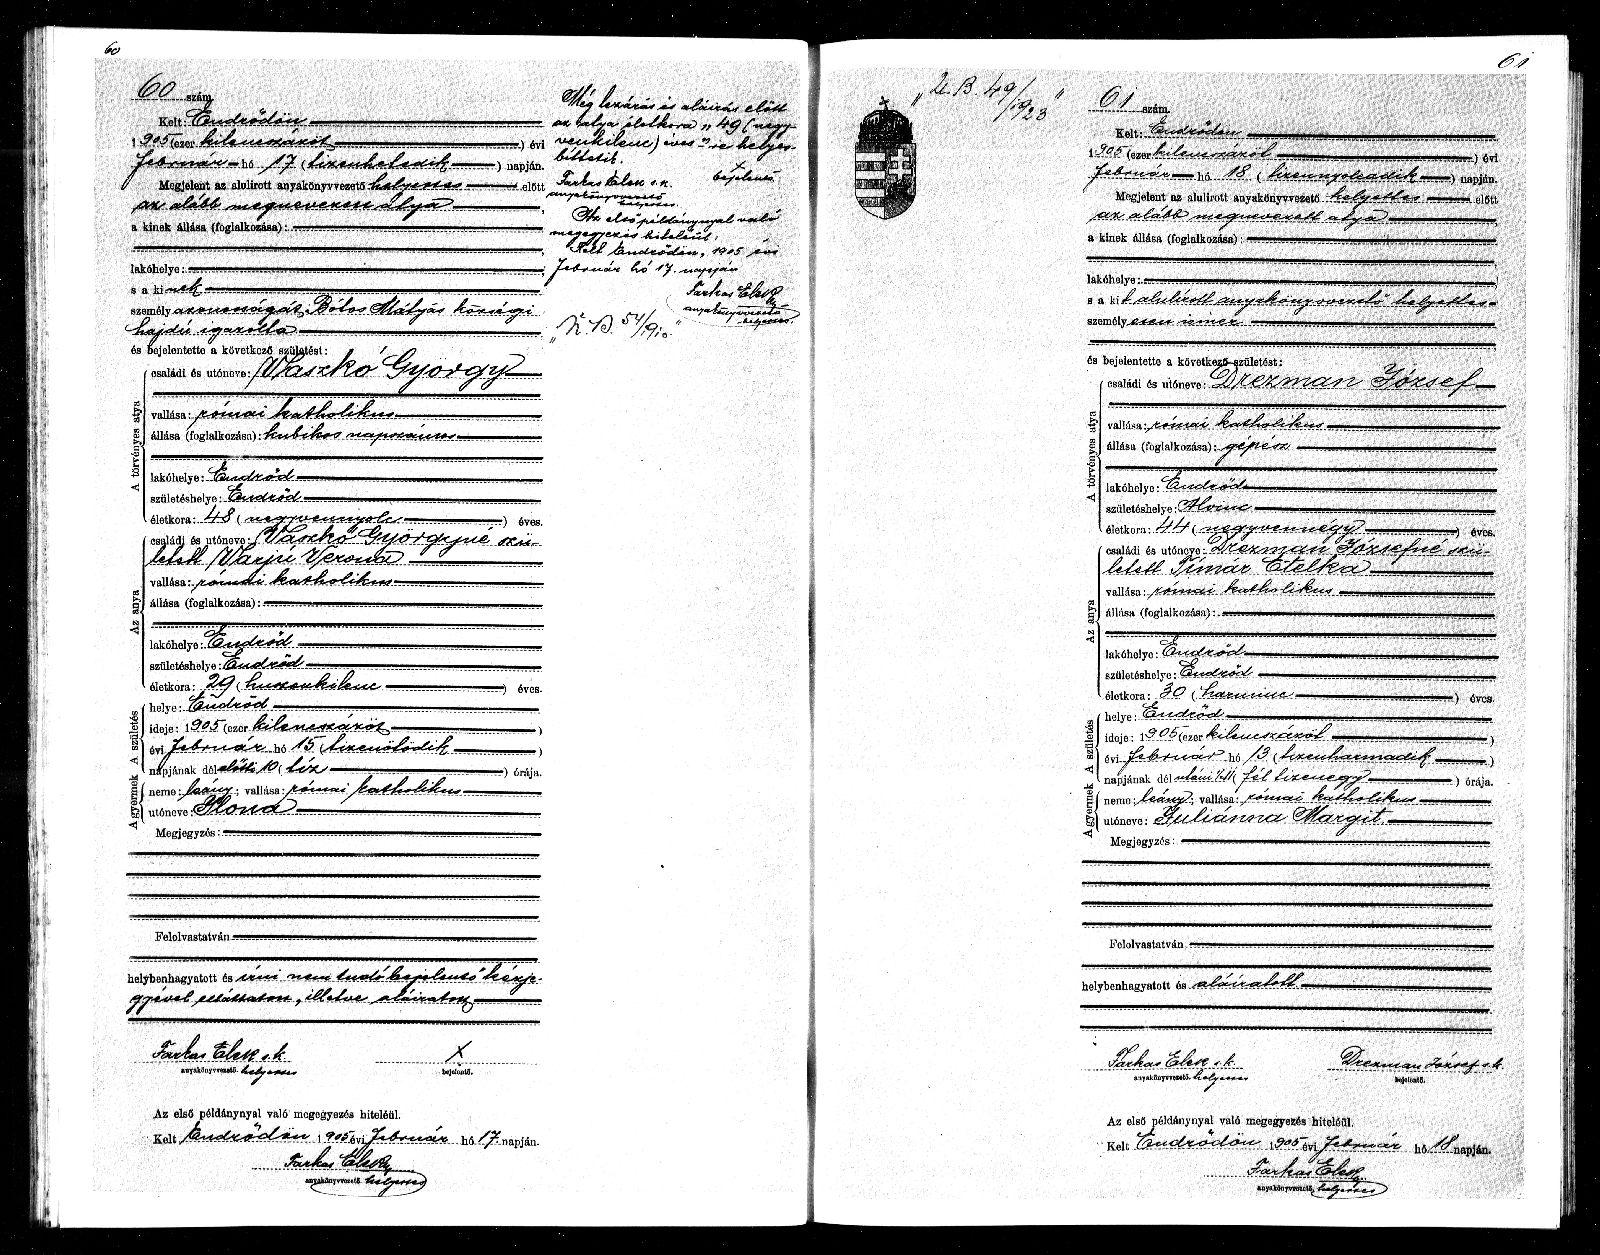 60
60 szám.
Kelt: Endrődön
1905 (ezer kilenczszázöt ) évi
február hó 17 (tizenhetedik ) napján.
Megjelent az alulirott anyakönyvvezető helyettes előtt
az alább megnevezett atya
a kinek állása (foglalkozása):
lakóhelye:
s a kinek
személyazonosságát, Bótos Mátyás községi
hajdú igazolta
és bejelentette a következő születést:
A törvényes atya
családi és utóneve: Vaszkó György
vallása: római katholikus
állása (foglalkozása): kubikos napszámos
lakóhelye: Endrőd
születéshelye: Endrőd
életkora: 48 (negyvennyolc ) éves.
Az anya
családi és utóneve: Vaszkó Györgyné szü-
letett Varjú Verona
vallása: római katholikus
állása (foglalkozása):
lakóhelye: Endrőd
születéshelye: Endrőd
életkora: 29 (huszonkilenc ) éves.
A születés
helye: Endrőd
ideje: 1905 (ezer kilenczszázöt )
évi február hó 15 (tizenötödik )
napjának dél előtti 10 (tíz ) órája.
A gyermek
neme: leány; vallása: római katholikus
utóneve: Ilona
Megjegyzés:
Felolvastatván
helybenhagyatott és írni nem tudó bejelentő kézje-
gyével elláttatott, illetve aláíratott
Farkas Elek s.k.
anyakönyvvezető helyettes
x
bejelentő.
Az első példánynyal való megegyezés hiteléül.
Kelt Endrődön 1905 évi február hó 17 napján.
Farkas Elek
anyakönyvvezető helyettes
Még lezárás és aláírás előtt
az atya életkora "49 (negy-
venkilenc) éves"-re helyes-
bíttetik.
Farkas Elek s.k.
x bejelentő
anyakönyvvezető
helyettes.
Az első példánynyal való
megegyezés hiteléül.
Kelt Endrődön, 1905 évi
február hó 17. napján
Farkas Elek
anyakönyvvezető
helyettes.
61
61 szám.
Kelt: Endrődön
1905 (ezer kilenczszázöt ) évi
február hó 18 (tizennyolcadik ) napján.
Megjelent az alulirott anyakönyvvezető helyettes előtt
az alább megnevezett atya
a kinek állása (foglalkozása):
lakóhelye:
s a kit alulírott anyakönyvvezető helyettes
személyesen ismer
és bejelentette a következő születést:
A törvényes atya
családi és utóneve: Drezman József
vallása: római katholikus
állása (foglalkozása): gépész
lakóhelye: Endrőd
születéshelye:
életkora: 44 (negyvennégy ) éves.
Az anya
családi és utóneve: Drezman Józsefné szü-
letett Tímár Etelka
vallása: római katholikus
állása (foglalkozása):
lakóhelye: Endrőd
születéshelye: Endrőd
életkora: 30 (harminc ) éves.
A születés
helye: Endrőd
ideje: 1905 (ezer kilenczszázöt )
évi február hó 13 (tizenharmadik )
napjának dél utáni ½11 (fél tizenegy ) órája.
A gyermek
neme: leány; vallása: római katholikus
utóneve: Juliánna Margit
Megjegyzés:
Felolvastatván
helybenhagyatott és aláíratott
Farkas Elek s.k.
anyakönyvvezető helyettes
Drezman József s.k.
bejelentő.
Az első példánynyal való megegyezés hiteléül.
Kelt Endrődön 1905 évi február hó 18 napján.
Farkas Elek
anyakönyvvezető helyettes